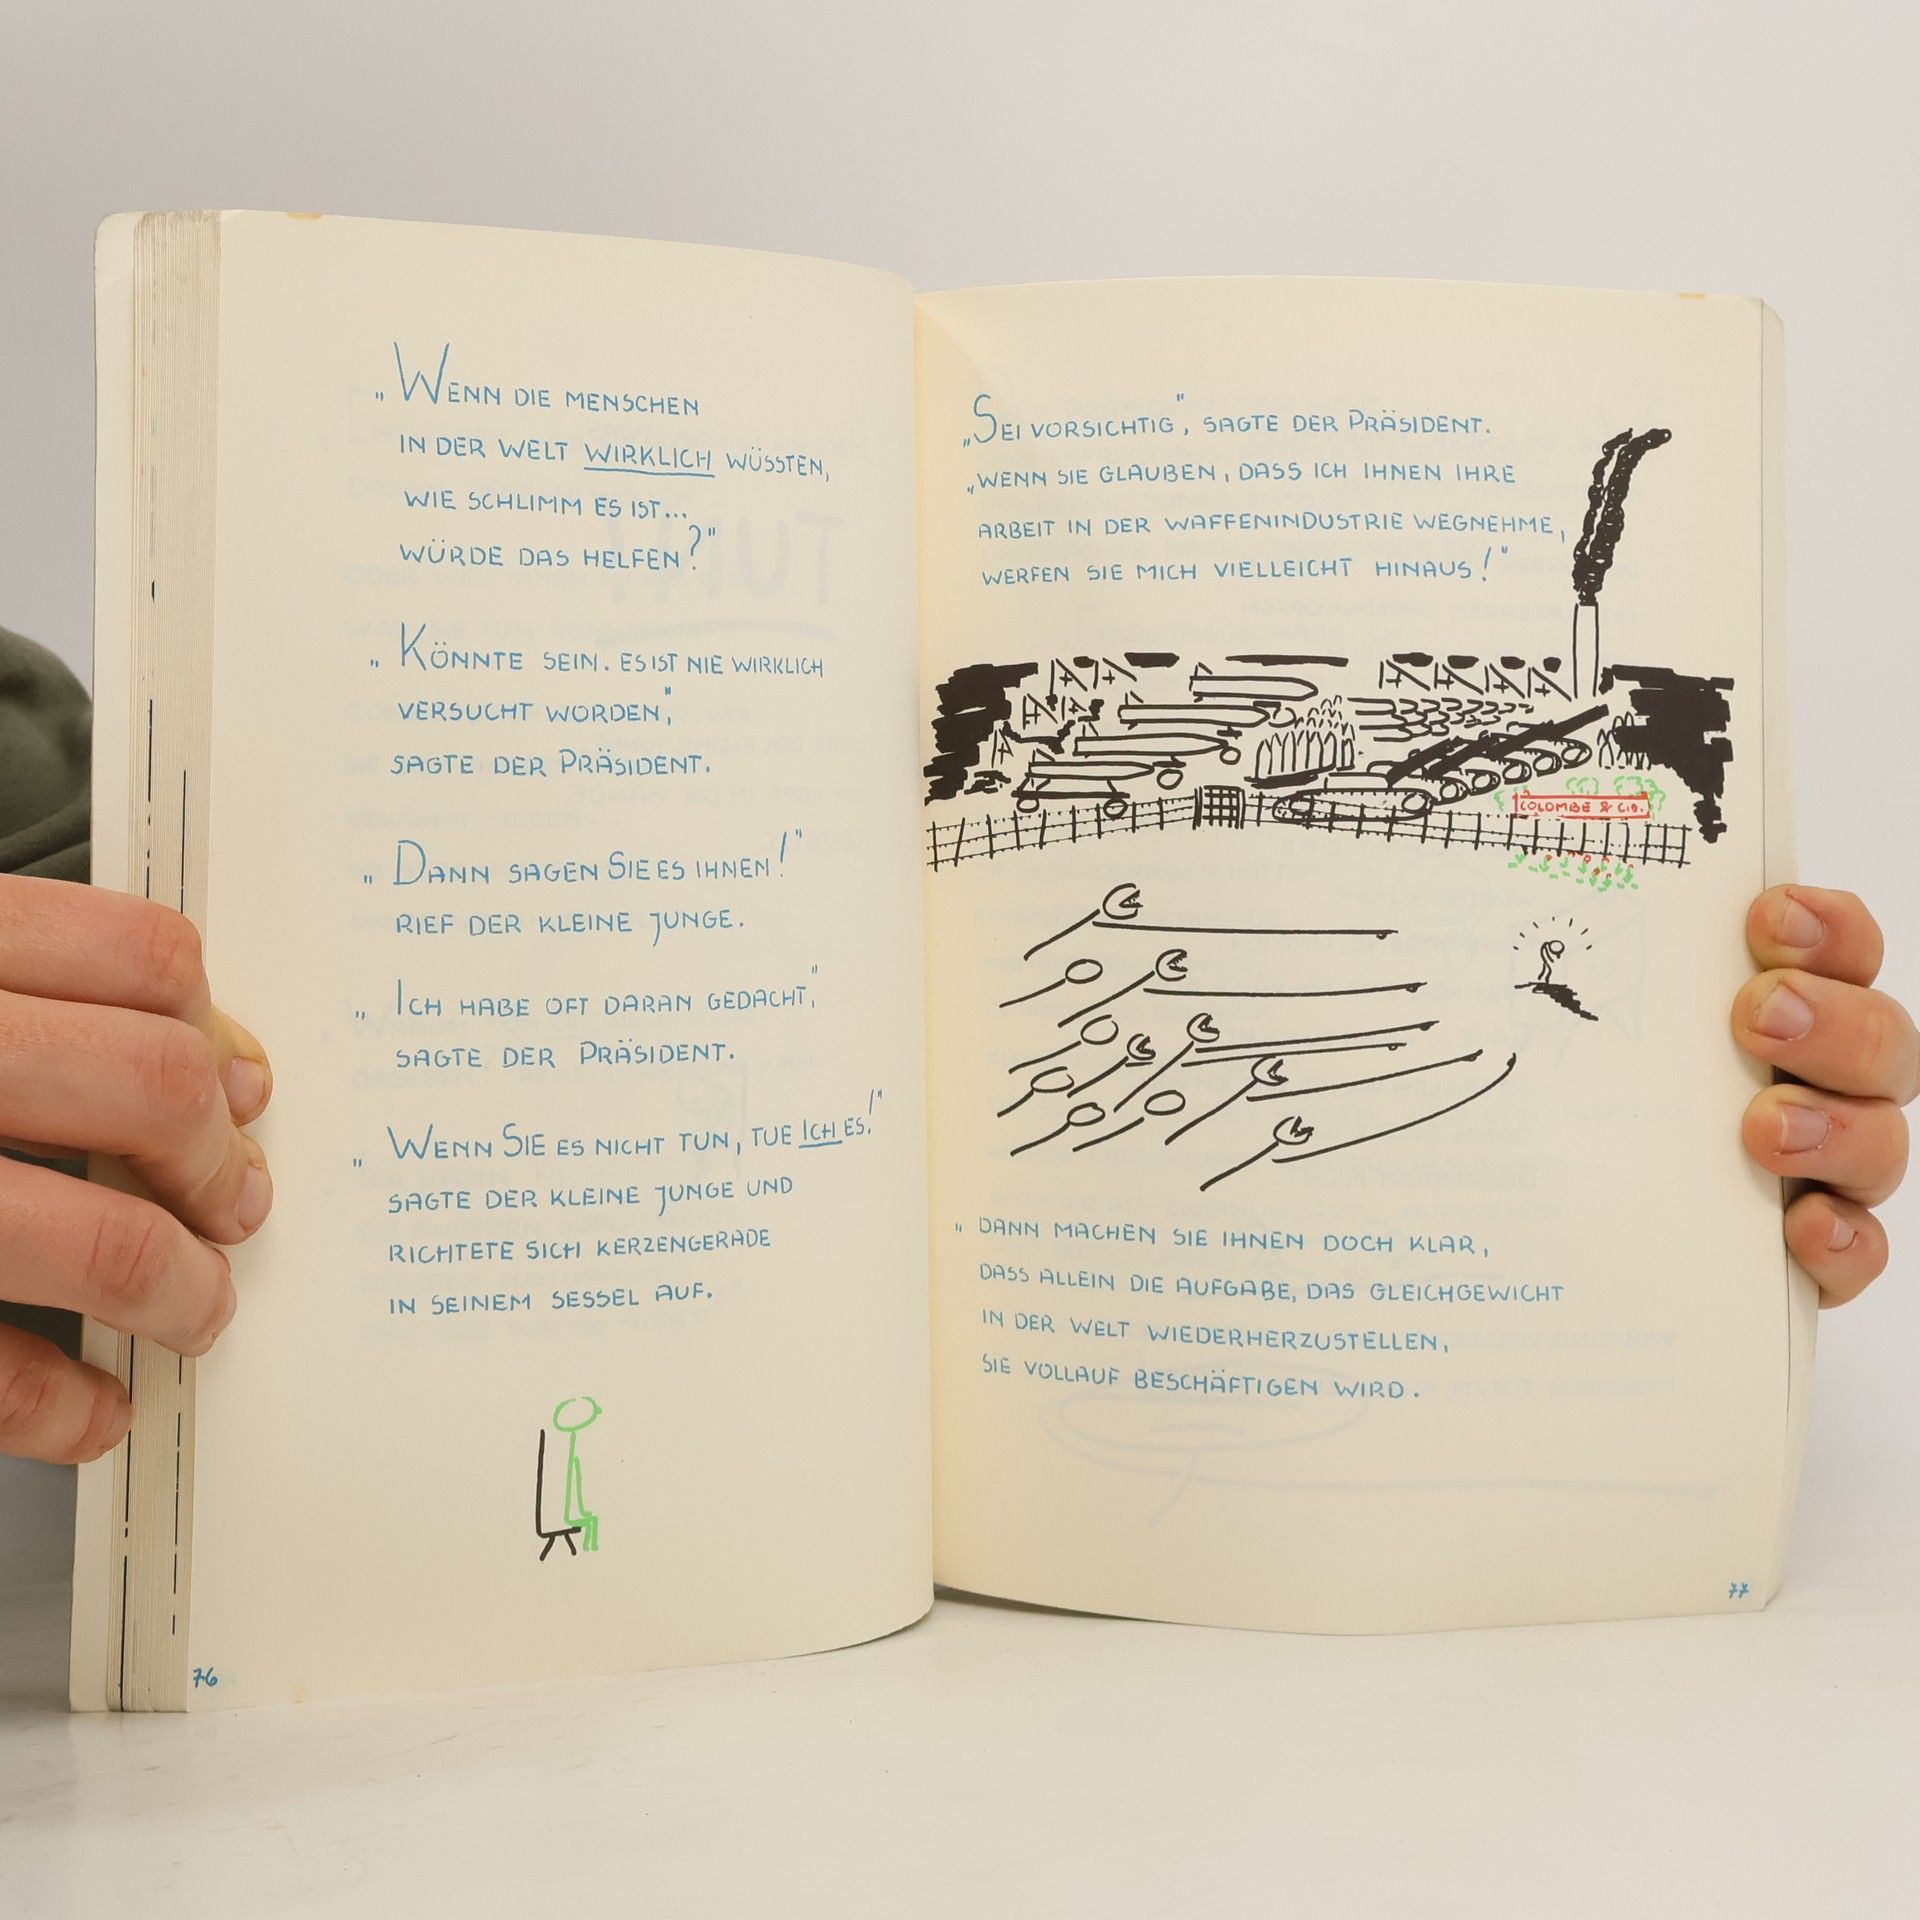 „Wenn die Menschen
in der Welt wirklich wüssten,
wie schlimm es ist...
würde das helfen?"
„Könnte sein. Es ist nie wirklich
versucht worden",
sagte der Präsident.
„Dann sagen Sie es ihnen!"
rief der kleine Junge.
„Ich habe oft daran gedacht",
sagte der Präsident.
„Wenn Sie es nicht tun, tue ich es!"
sagte der kleine Junge und
richtete sich kerzengerade
in seinem Sessel auf.
76
„Sei vorsichtig", sagte der Präsident.
„Wenn sie glauben, dass ich ihnen ihre
Arbeit in der Waffenindustrie wegnehme,
werfen sie mich vielleicht hinaus!"
COLOMBE & CIE.
„Dann machen Sie ihnen doch klar,
dass allein die Aufgabe, das Gleichgewicht
in der Welt wiederherzustellen,
sie vollauf beschäftigen wird.
77